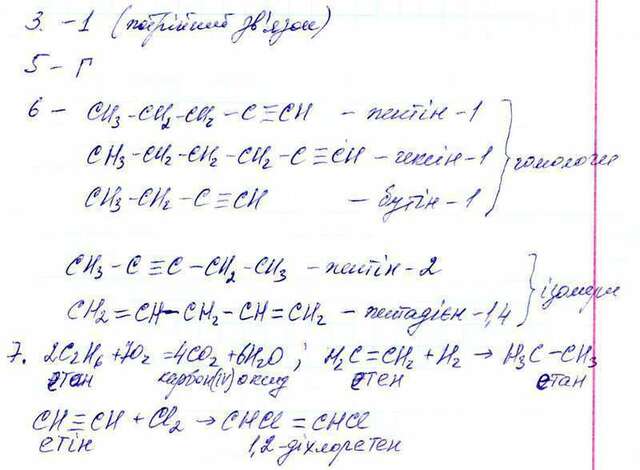 3. -1 (потрійний зв'язок)
5 - Г
6 - CH₃ -CH₂ -CH₂ - C ≡CH - пентін -1
CH₃ -CH₂ -CH₂ -CH₂ -C ≡CH - гексін -1 } гомологи
CH₃ -CH₂ -C ≡CH - бутін -1
CH₃ -C ≡C -CH₂ -CH₃ - пентін -2 } ізомери
CH₂ =CH -CH₂ -CH =CH₂ - пентадієн -1,4
7. 2C₂H₆ +7O₂ =4CO₂ +6H₂O ; H₂C =CH₂ + H₂ → H₃C -CH₃
етан карбон(iv) оксид етен етан
CH ≡CH + Cl₂ → CHCl =CHCl
етін 1,2-діхлоретен